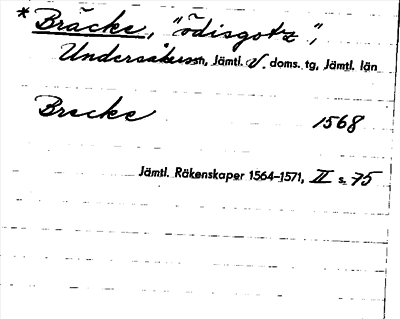 * Bräcke, "ödisgotz",
Undersåkers sn, Jämtl. V. doms. tg, Jämtl. län
Brecke 1568
Jämtl. Räkenskaper 1564–1571, II s. 75